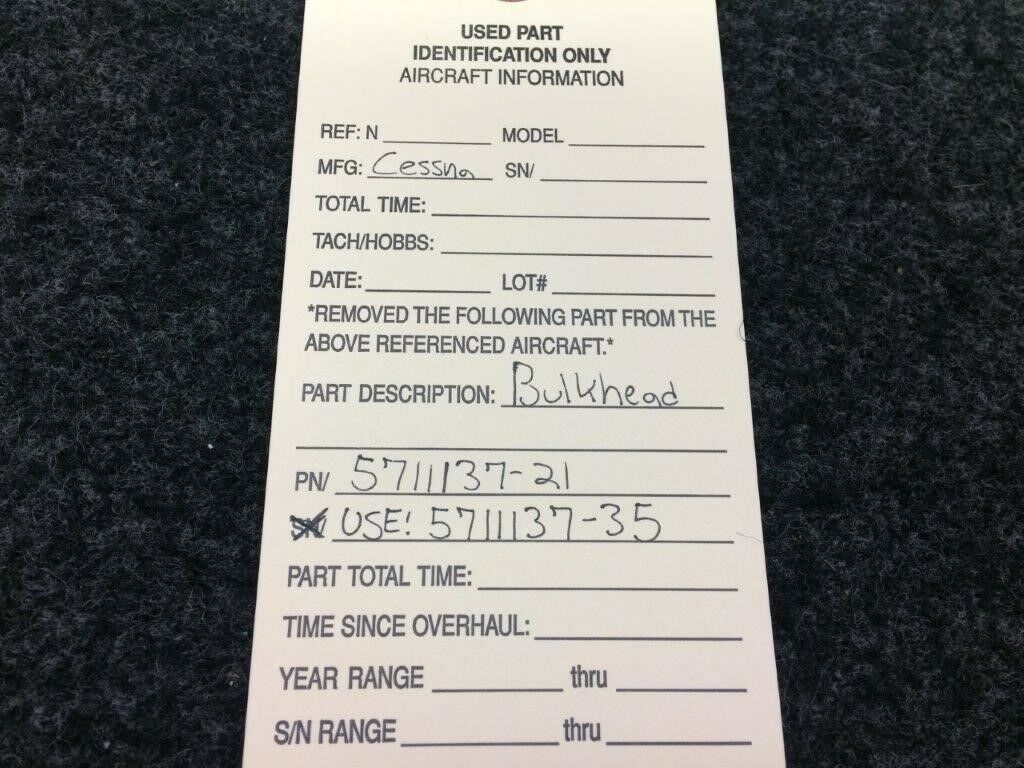 USED PART
IDENTIFICATION ONLY
AIRCRAFT INFORMATION
REF: N MODEL
MFG: Cessna SN/
TOTAL TIME:
TACH/HOBBS:
DATE: LOT#
*REMOVED THE FOLLOWING PART FROM THE
ABOVE REFERENCED AIRCRAFT.*
PART DESCRIPTION: Bulkhead
PN/ 5711137-21
SN/ USE! 5711137-35
PART TOTAL TIME:
TIME SINCE OVERHAUL:
YEAR RANGE thru
S/N RANGE thru